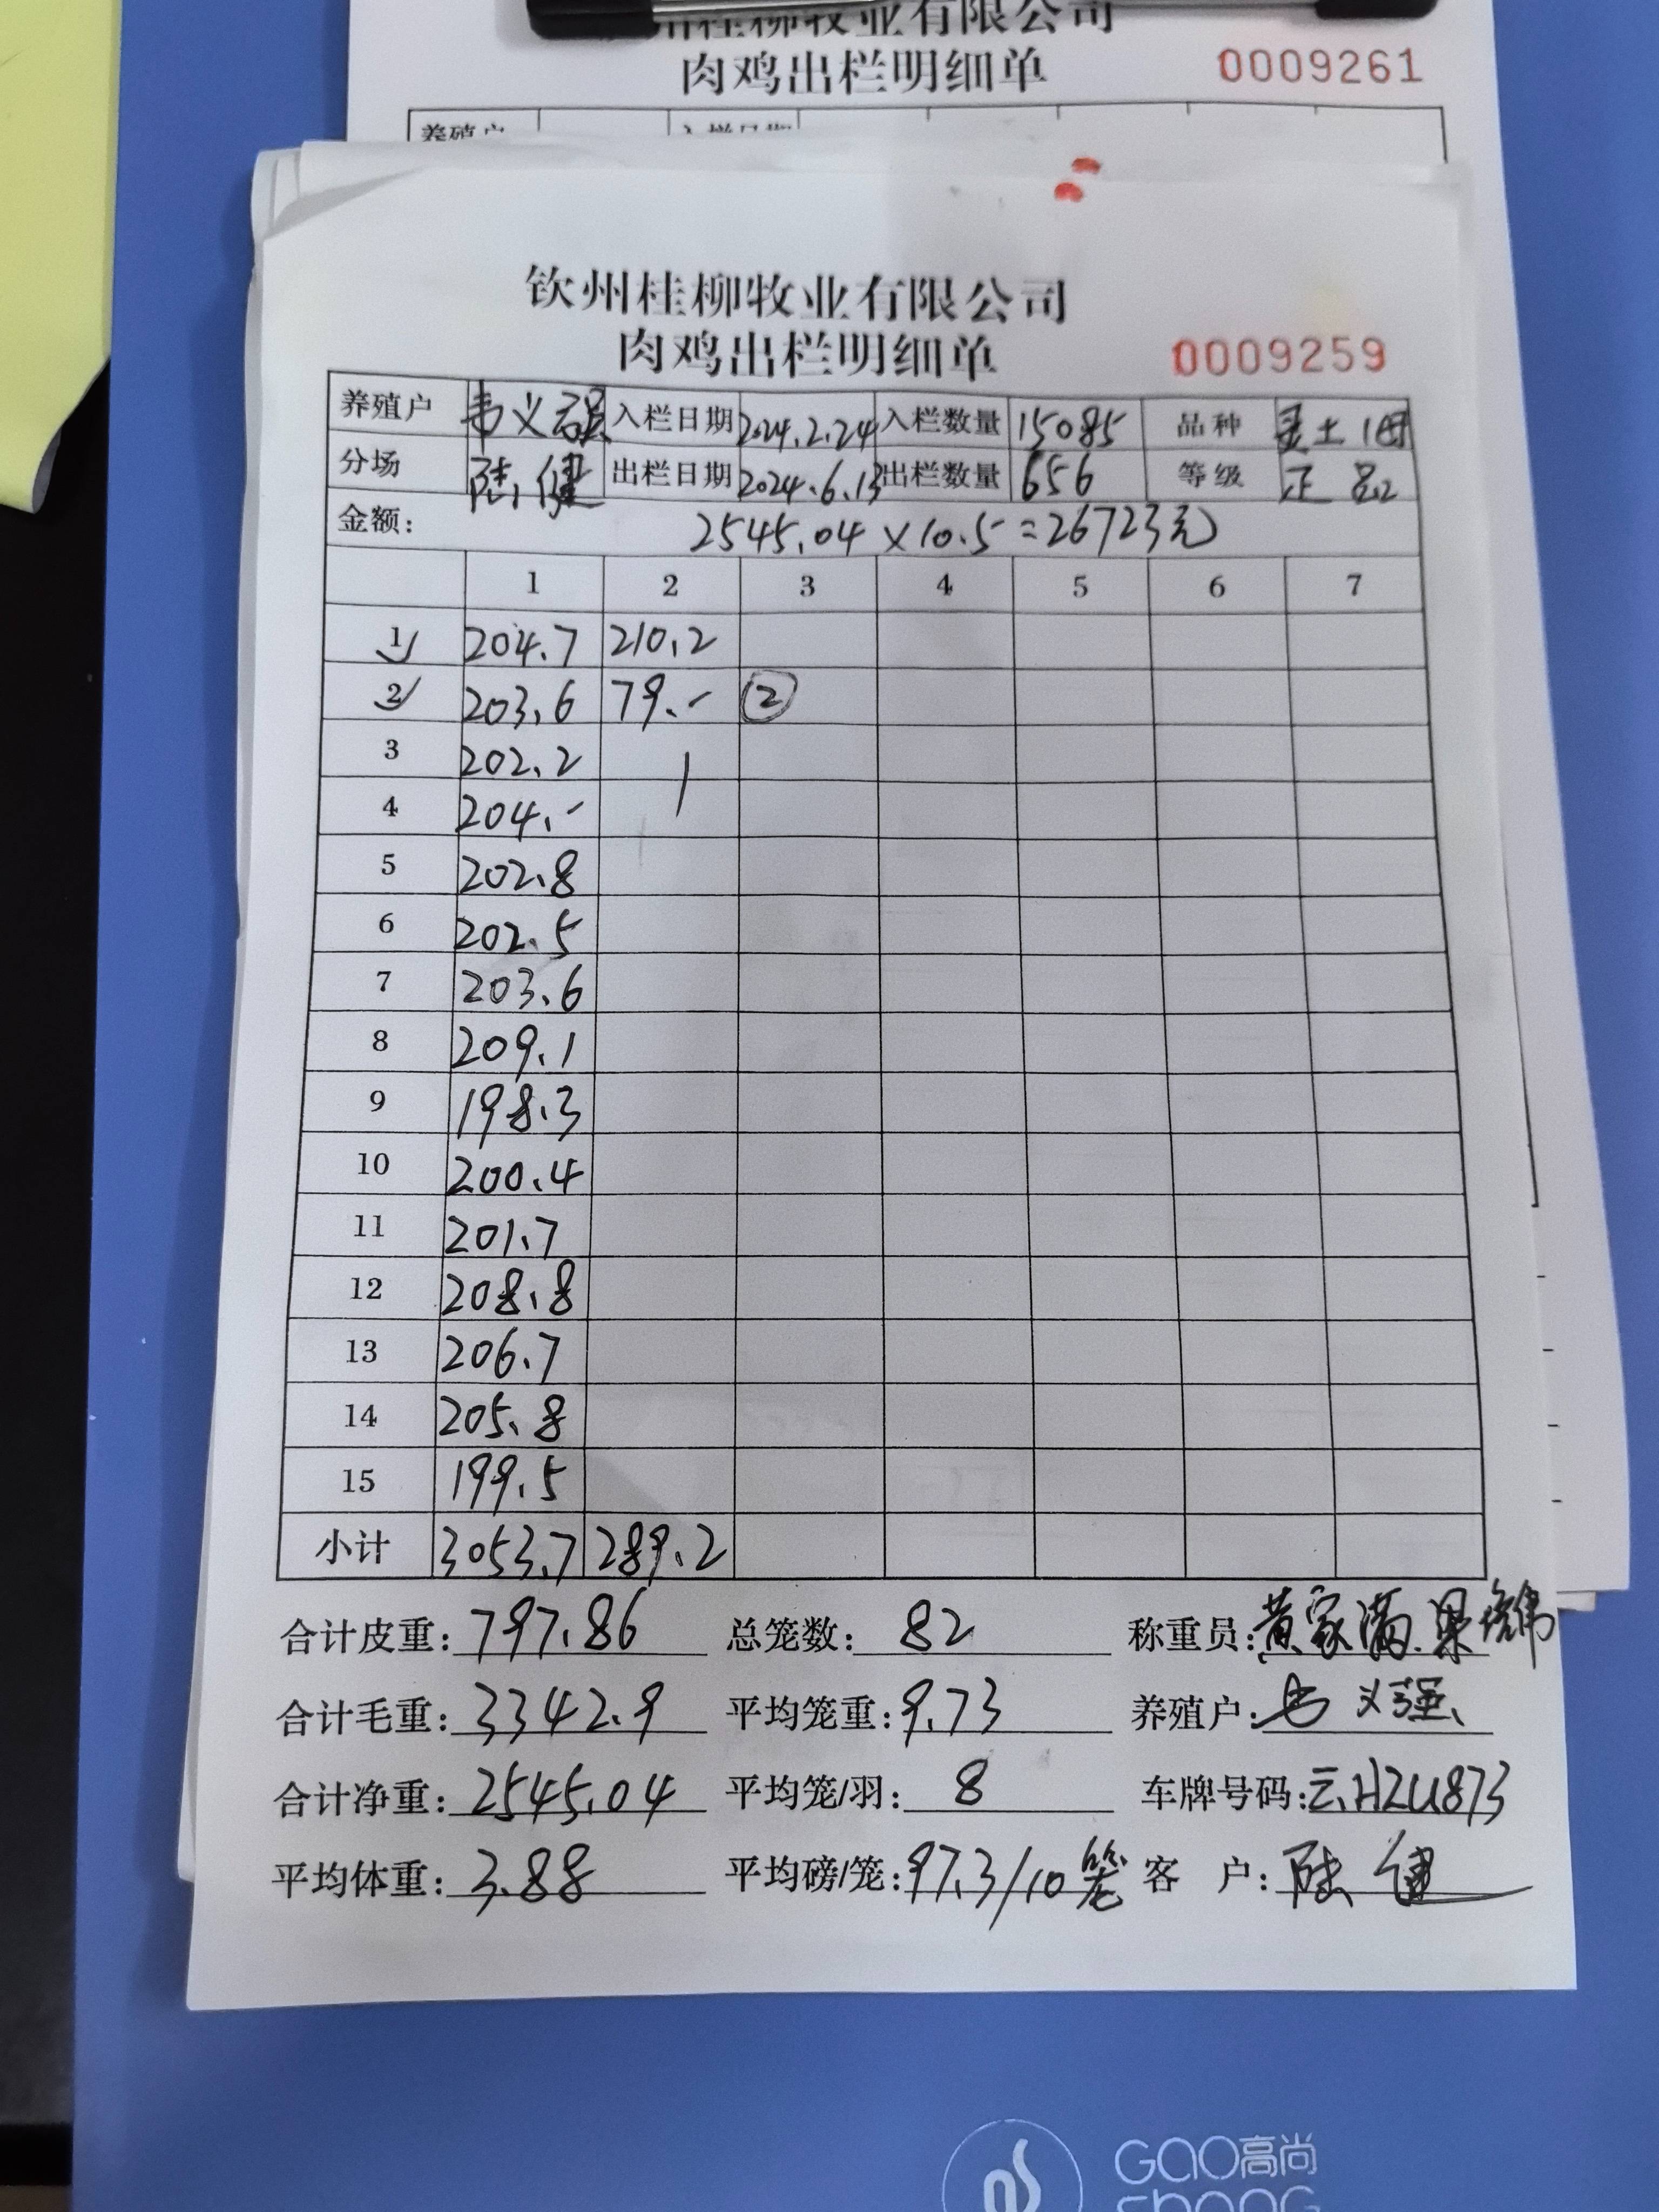 州桂柳牧业有限公司
肉鸡出栏明细单 0009261
养殖户 入栏日期
钦州桂柳牧业有限公司
肉鸡出栏明细单 0009259
养殖户 韦义强 入栏日期 2024.2.24 入栏数量 15085 品种 灵土1母
分场 陆健 出栏日期 2024.6.13 出栏数量 656 等级 正品
金额: 2545.04×10.5=26723元
1 2 3 4 5 6 7
1 204.7 210.2
2 203.6 79.- ②
3 202.2
4 204.-
5 202.8
6 202.5
7 203.6
8 209.1
9 198.3
10 200.4
11 201.7
12 208.8
13 206.7
14 205.8
15 199.5
小计 3053.7 289.2
合计皮重: 797.86 总笼数: 82 称重员: 黄家满.梁
合计毛重: 3342.9 平均笼重: 9.73 养殖户: 韦义强
合计净重: 2545.04 平均笼/羽: 8 车牌号码: 云HZU873
平均体重: 3.88 平均磅/笼: 97.3/10笼 客 户: 陆健
GAO高尚
SHANG